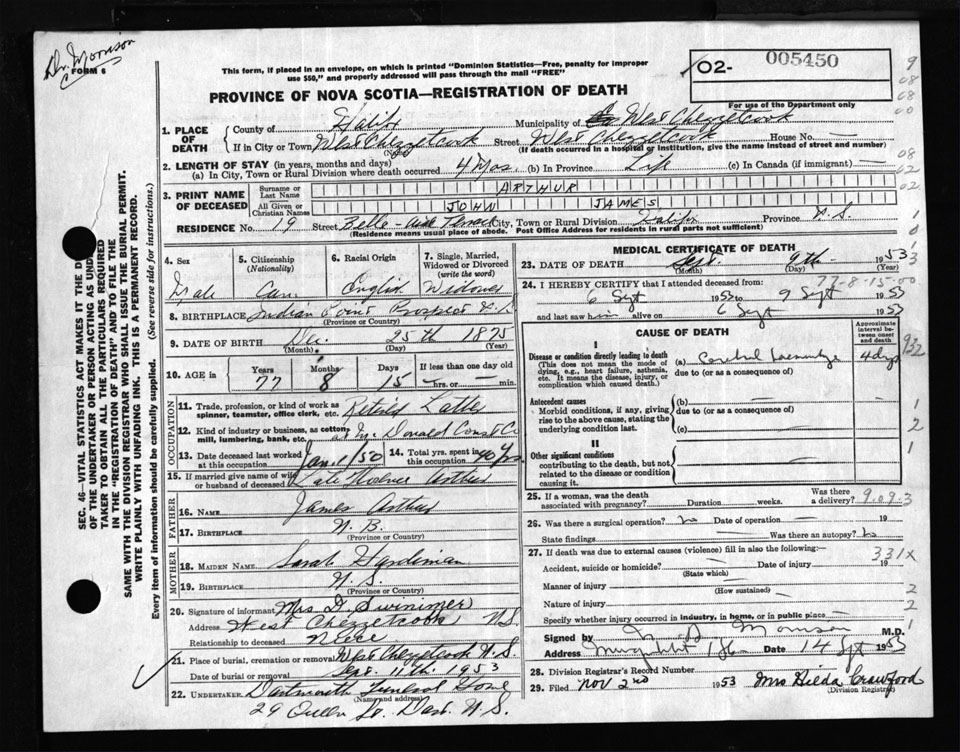 Dr. Morrison
FORM 6
This form, if placed in an envelope, on which is printed "Dominion Statistics—Free, penalty for improper
use $50," and properly addressed will pass through the mail "FREE"
PROVINCE OF NOVA SCOTIA—REGISTRATION OF DEATH
02-
005450
For use of the Department only
1. PLACE OF DEATH
County of Halifx Municipality of West Chezzetcook
If in City or Town West Chezzetcook Street West Chezzetcook House No. —
(Name)
(If death occurred in a hospital or institution, give the name instead of street and number)
2. LENGTH OF STAY (in years, months and days)
(a) In City, Town or Rural Division where death occurred 4 Mos. (b) In Province Life (c) In Canada (if immigrant) —
3. PRINT NAME OF DECEASED
Surname or Last Name ARTHUR
All Given or Christian Names JOHN JAMES
RESIDENCE No. 19 Street Belle-Aire Terrace City, Town or Rural Division Halifx Province N.S.
(Residence means usual place of abode. Post Office Address for residents in rural parts not sufficient)
4. Sex
Male
5. Citizenship
(Nationality)
Can
6. Racial Origin
English
7. Single, Married, Widowed or Divorced
(write the word)
Widower
8. BIRTHPLACE Indian Point Prospect N.S.
(Province or Country)
9. DATE OF BIRTH Dec. 25th 1875
(Month) (Day) (Year)
10. AGE in
Years Months Days If less than one day old
77 8 15 — hrs. or — min.
OCCUPATION
11. Trade, profession, or kind of work as spinner, teamster, office clerk, etc. Retired
12. Kind of industry or business, as cotton mill, lumbering, bank, etc. Donald Const Co
13. Date deceased last worked at this occupation Jan 1/50
14. Total yrs. spent in this occupation 40 yrs.
15. If married give name of wife or husband of deceased Late Arthur
FATHER
16. NAME James Arthur
17. BIRTHPLACE N.B.
(Province or Country)
MOTHER
18. MAIDEN NAME Sarah
19. BIRTHPLACE N.S.
(Province or Country)
20. Signature of informant Mrs D. Swinimer
Address West Chezzetcook N.S.
Relationship to deceased Niece
21. Place of burial, cremation or removal West Chezzetcook N.S.
Date of burial or removal Sept. 11th 1953
22. UNDERTAKER Dartmouth Funeral Home
(Name and address)
29 Queen St. Dart. N.S.
MEDICAL CERTIFICATE OF DEATH
23. DATE OF DEATH Sept. 9th 1953
(Month) (Day) (Year)
77-8-15-00
24. I HEREBY CERTIFY that I attended deceased from:
6 Sept 1953 to 9 Sept 1953
and last saw him alive on 6 Sept 1953
CAUSE OF DEATH
Approximate interval between onset and death
I
Disease or condition directly leading to death
(This does not mean the mode of dying, e.g., heart failure, asthenia, etc. It means the disease, injury, or complication which caused death.)
(a) Cerebral 4 days
due to (or as a consequence of)
Antecedent causes
Morbid conditions, if any, giving rise to the above cause, stating the underlying condition last.
(b) —
due to (or as a consequence of)
(c) —
II
Other significant conditions
contributing to the death, but not related to the disease or condition causing it.
25. If a woman, was the death associated with pregnancy? Duration weeks. Was there a delivery?
9.09.3
26. Was there a surgical operation? no Date of operation 19
State findings Was there an autopsy? no
27. If death was due to external causes (violence) fill in also the following:—
331X
Accident, suicide or homicide? Date of injury 19
(State which)
Manner of injury
(How sustained)
Nature of injury
Specify whether injury occurred in industry, in home, or in public place —
Signed by Morrison M.D.
Address Date 14 Sept 1953
28. Division Registrar's Record Number
29. Filed Nov 2nd 1953 Mrs Hilda Crawford
(Division Registrar)
SEC. 46—VITAL STATISTICS ACT MAKES IT THE
OF THE UNDERTAKER OR PERSON ACTING AS
TAKER TO OBTAIN ALL THE PARTICULARS REQUIRED
IN THE "REGISTRATION OF DEATH" AND TO FILE THE
SAME WITH THE DIVISION REGISTRAR WHO SHALL ISSUE THE BURIAL PERMIT.
WRITE PLAINLY WITH UNFADING INK. THIS IS A PERMANENT RECORD.
Every item of information should be carefully supplied. (See reverse side for instructions.)